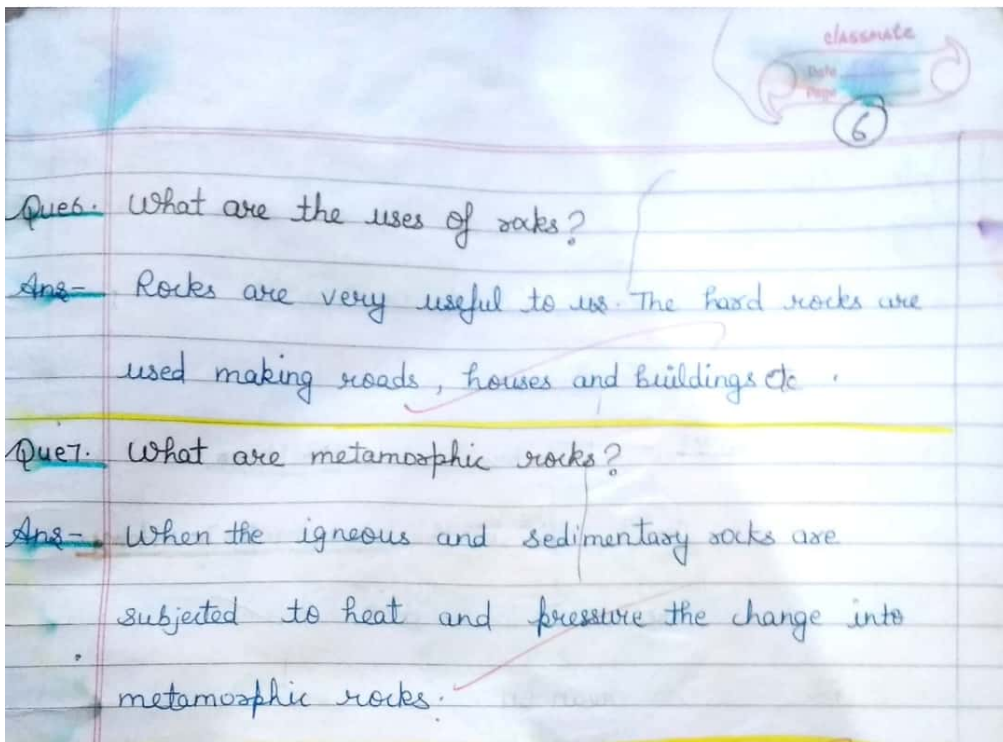 classmate
Date
Page
6
Que6. What are the uses of rocks?
Ans- Rocks are very useful to us. The hard rocks are
used making roads, houses and buildings etc.
Que7. What are metamorphic rocks?
Ans- When the igneous and sedimentary rocks are
subjected to heat and pressure the change into
metamorphic rocks.